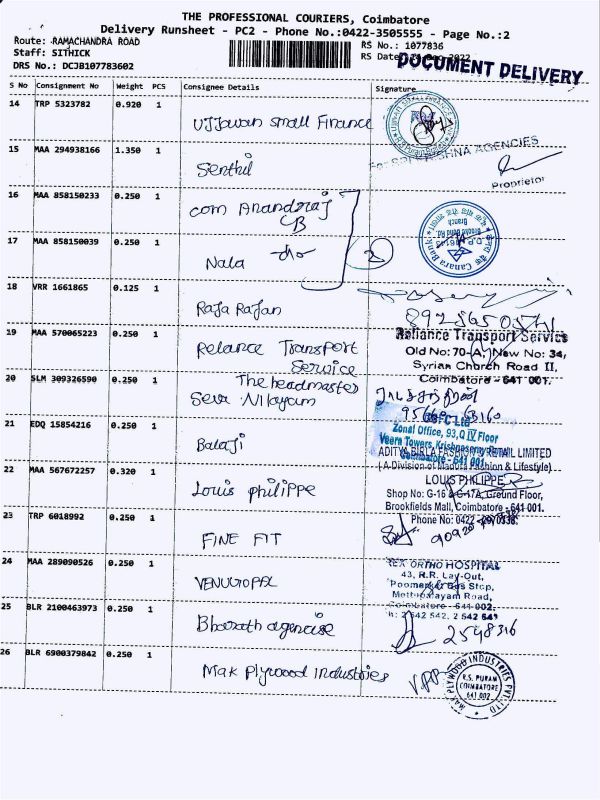 THE PROFESSIONAL COURIERS, Coimbatore
Delivery Runsheet - PC2 - Phone No.:0422-3505555 - Page No.:2
Route: RAMACHANDRA ROAD
Staff: SITHICK
DRS No.: DCJB107783602
RS No.: 1077836
RS Date: 2022
DOCUMENT DELIVERY
S No Consignment No Weight PCS Consignee Details Signature
14 TRP 5323782 0.920 1
Ujjawan small Finance
15 MAA 294938166 1.350 1
Senthil
KRISHNA AGENCIES
Proprietor
16 MAA 858150233 0.250 1
com Anandraj
CB
17 MAA 858150039 0.250 1
Nala
2
Canara Bank
Branch
18 VRR 1661865 0.125 1
Raja Rajan
19 MAA 570065223 0.250 1
Relance Transport
Service
Reliance Transport Service
Old No: 70-A, New No: 34,
Syrian Church Road II,
Coimbatore - 641 001.
20 SLM 309326590 0.250 1
The headmaster
Seva Nilayam
21 EDQ 15854216 0.250 1
Balaji
Zonal Office, 93,Q IV Floor
Veera Towers, Krishnasamy
Coimbatore - 641 001
22 MAA 567672257 0.320 1
Louis philippe
ADITYA BIRLA FASHION RETAIL LIMITED
(A Division of Madura Fashion & Lifestyle)
LOUIS PHILIPPE
Shop No: G-16 & G-17A, Ground Floor,
Brookfields Mall, Coimbatore - 641 001.
Phone No: 0422
23 TRP 6018992 0.250 1
FINE FIT
24 MAA 289090526 0.250 1
VENUGOPAL
REX ORTHO HOSPITAL
43, R.R. Lay-Out,
Poomarket Bus Stop,
Mettupalayam Road,
Coimbatore - 641 002.
25 BLR 2100463973 0.250 1
Bharath agencise
2548316
26 BLR 6900379842 0.250 1
Mak plywood industries
MAK PLYWOOD INDUSTRIES PVT. LTD
R.S. PURAM
COIMBATORE
641 002